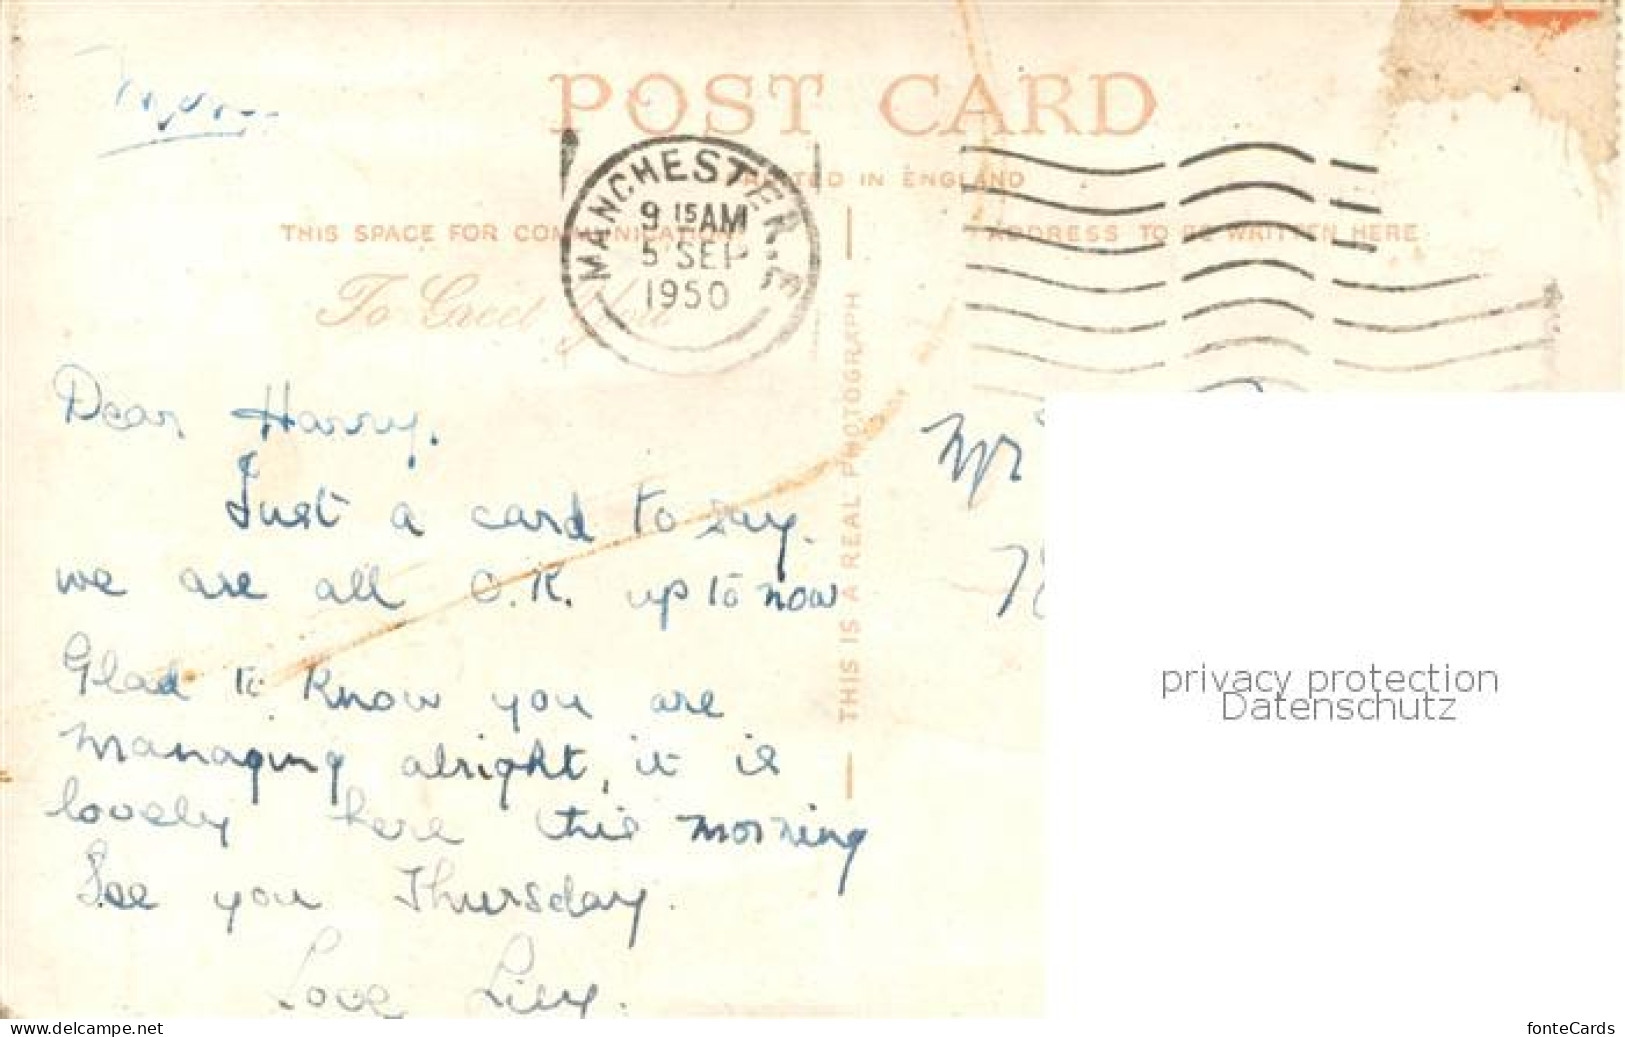 POST CARD
PRINTED IN ENGLAND
MANCHESTER.E
9 15 AM
5 SEP
1950
THIS SPACE FOR COMMUNICATION
ADDRESS TO BE WRITTEN HERE
To Greet You
THIS IS A REAL PHOTOGRAPH
Dear Harry.
Just a card to say.
we are all O.K. up to now
Glad to know you are
managing alright, it is
lovely here this morning
See you Thursday.
Love Lily.
Mr
privacy protection
Datenschutz
www.delcampe.net
fonteCards